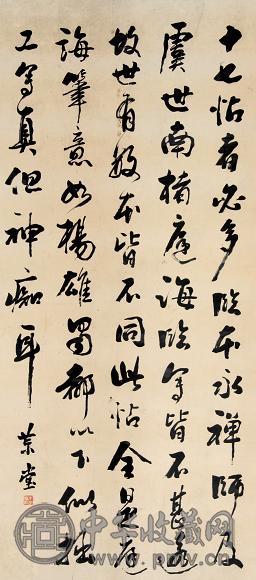 十七帖者必多臨本永禪師及
虞世南褚庭誨臨寫皆不甚遠
故世有數本皆不同此帖全是庭
誨筆意如楊雄蜀都以下似拙
工寫真但神痴耳
堂
中华收藏网